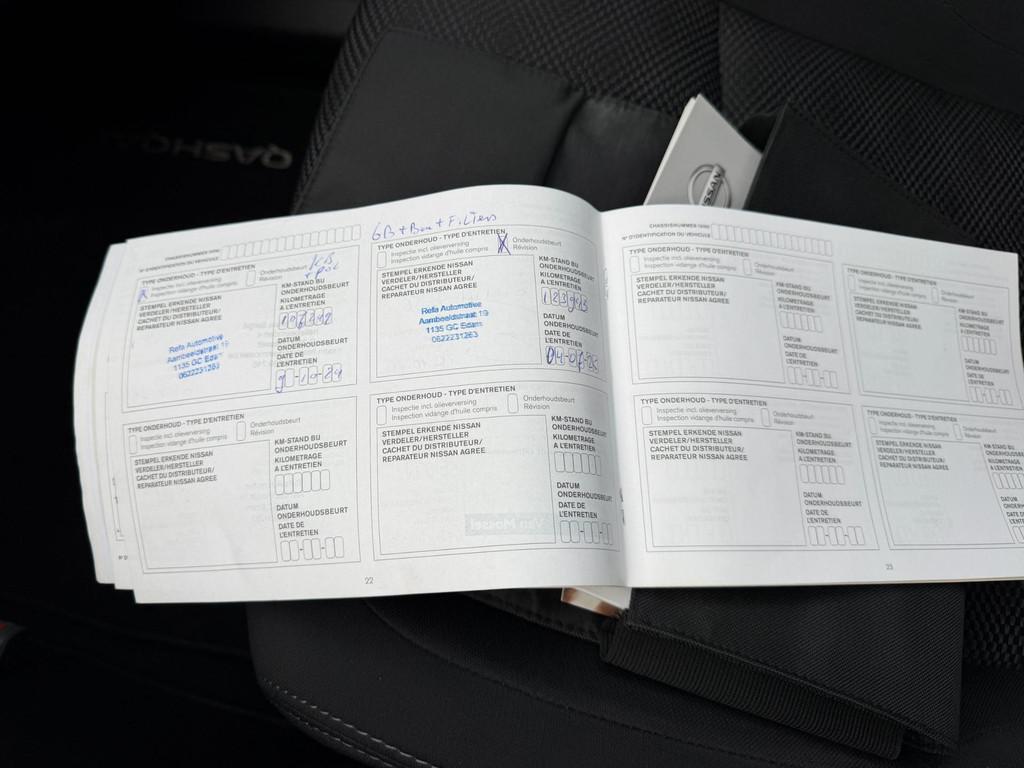 QASHQAI
NISSAN
CHASSISNUMMER (VIN)
N° D'IDENTIFICATION DU VÉHICULE
TYPE ONDERHOUD - TYPE D'ENTRETIEN
Inspectie incl. olieverversing
Inspection vidange d'huile compris
Onderhoudsbeurt
Révision
STEMPEL ERKENDE NISSAN
VERDELER/HERSTELLER
CACHET DU DISTRIBUTEUR/
REPARATEUR NISSAN AGREE
Refa Automotive
Aambeeldstraat 19
1135 GC Edam
0622231263
KM-STAND BIJ
ONDERHOUDSBEURT
KILOMETRAGE
A L'ENTRETIEN
DATUM
ONDERHOUDSBEURT
DATE DE
L'ENTRETIEN
GB + Bou + Filters
TYPE ONDERHOUD - TYPE D'ENTRETIEN
X
Inspectie incl. olieverversing
Inspection vidange d'huile compris
Onderhoudsbeurt
Révision
STEMPEL ERKENDE NISSAN
VERDELER/HERSTELLER
CACHET DU DISTRIBUTEUR/
REPARATEUR NISSAN AGREE
Refa Automotive
Aambeeldstraat 19
1135 GC Edam
0622231263
KM-STAND BIJ
ONDERHOUDSBEURT
KILOMETRAGE
A L'ENTRETIEN
DATUM
ONDERHOUDSBEURT
DATE DE
L'ENTRETIEN
TYPE ONDERHOUD - TYPE D'ENTRETIEN
Inspectie incl. olieverversing
Inspection vidange d'huile compris
Onderhoudsbeurt
Révision
STEMPEL ERKENDE NISSAN
VERDELER/HERSTELLER
CACHET DU DISTRIBUTEUR/
REPARATEUR NISSAN AGREE
KM-STAND BIJ
ONDERHOUDSBEURT
KILOMETRAGE
A L'ENTRETIEN
DATUM
ONDERHOUDSBEURT
DATE DE
L'ENTRETIEN
TYPE ONDERHOUD - TYPE D'ENTRETIEN
Inspectie incl. olieverversing
Inspection vidange d'huile compris
Onderhoudsbeurt
Révision
STEMPEL ERKENDE NISSAN
VERDELER/HERSTELLER
CACHET DU DISTRIBUTEUR/
REPARATEUR NISSAN AGREE
KM-STAND BIJ
ONDERHOUDSBEURT
KILOMETRAGE
A L'ENTRETIEN
DATUM
ONDERHOUDSBEURT
DATE DE
L'ENTRETIEN
Van Mossel
22
CHASSISNUMMER (VIN)
N° D'IDENTIFICATION DU VÉHICULE
TYPE ONDERHOUD - TYPE D'ENTRETIEN
Inspectie incl. olieverversing
Inspection vidange d'huile compris
Onderhoudsbeurt
Révision
STEMPEL ERKENDE NISSAN
VERDELER/HERSTELLER
CACHET DU DISTRIBUTEUR/
REPARATEUR NISSAN AGREE
KM-STAND BIJ
ONDERHOUDSBEURT
KILOMETRAGE
A L'ENTRETIEN
DATUM
ONDERHOUDSBEURT
DATE DE
L'ENTRETIEN
TYPE ONDERHOUD - TYPE D'ENTRETIEN
STEMPEL ERKENDE NISSAN
VERDELER/HERSTELLER
CACHET DU DISTRIBUTEUR/
REPARATEUR NISSAN AGREE
KM-STAND BIJ
ONDERHOUDSBEURT
KILOMETRAGE
A L'ENTRETIEN
DATUM
ONDERHOUDSBEURT
DATE DE
L'ENTRETIEN
TYPE ONDERHOUD - TYPE D'ENTRETIEN
Inspectie incl. olieverversing
Inspection vidange d'huile compris
Onderhoudsbeurt
Révision
STEMPEL ERKENDE NISSAN
VERDELER/HERSTELLER
CACHET DU DISTRIBUTEUR/
REPARATEUR NISSAN AGREE
KM-STAND BIJ
ONDERHOUDSBEURT
KILOMETRAGE
A L'ENTRETIEN
DATUM
ONDERHOUDSBEURT
DATE DE
L'ENTRETIEN
TYPE ONDERHOUD - TYPE D'ENTRETIEN
STEMPEL ERKENDE NISSAN
VERDELER/HERSTELLER
CACHET DU DISTRIBUTEUR/
REPARATEUR NISSAN AGREE
23